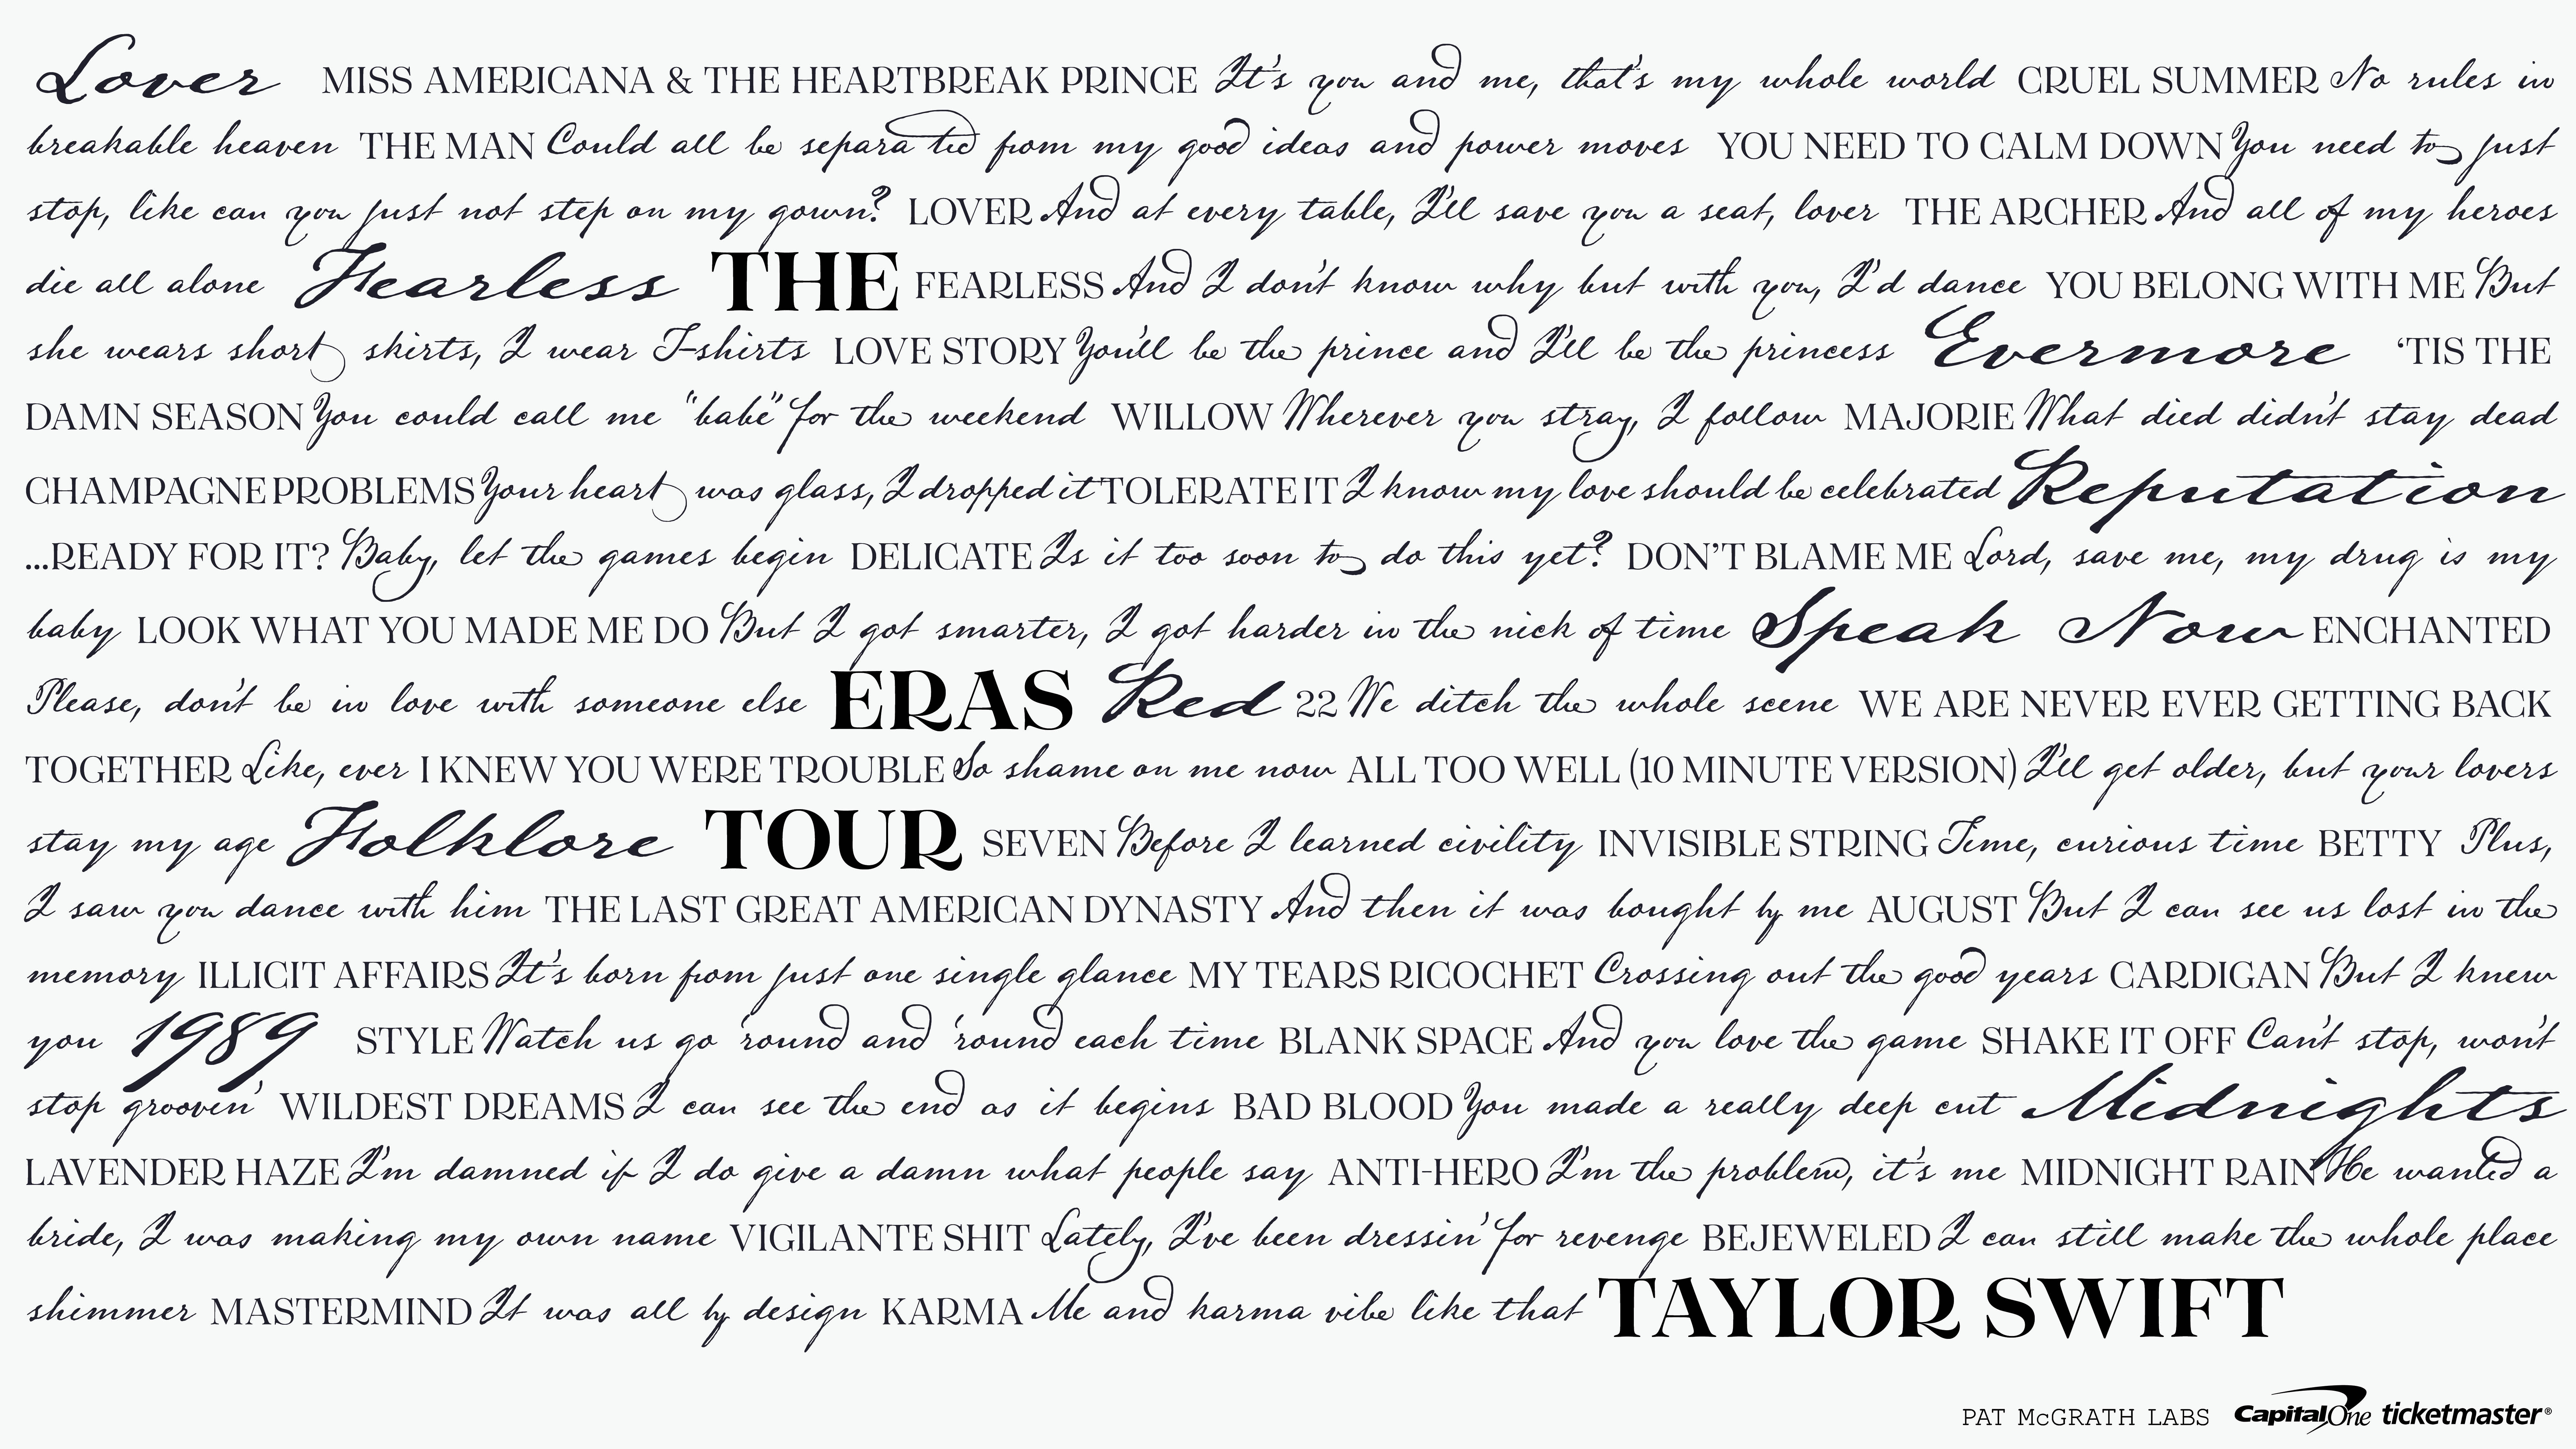 Lover MISS AMERICANA & THE HEARTBREAK PRINCE It's you and me, that's my whole world CRUEL SUMMER No rules in
breakable heaven THE MAN Could all be separated from my good ideas and power moves YOU NEED TO CALM DOWN You need to just
stop, like can you just not step on my gown? LOVER And at every table, I'll save you a seat, lover THE ARCHER And all of my heroes
die all alone Fearless THE FEARLESS And I don't know why but with you, I'd dance YOU BELONG WITH ME But
she wears short skirts, I wear T-shirts LOVE STORY You'll be the prince and I'll be the princess Evermore ‘TIS THE
DAMN SEASON You could call me "babe" for the weekend WILLOW Wherever you stray, I follow MAJORIE What died didn't stay dead
CHAMPAGNE PROBLEMS Your heart was glass, I dropped it TOLERATE IT I know my love should be celebrated Reputation
...READY FOR IT? Baby, let the games begin DELICATE Is it too soon to do this yet? DON'T BLAME ME Lord, save me, my drug is my
baby LOOK WHAT YOU MADE ME DO But I got smarter, I got harder in the nick of time Speak Now ENCHANTED
Please, don't be in love with someone else ERAS Red 22 We ditch the whole scene WE ARE NEVER EVER GETTING BACK
TOGETHER Like, ever I KNEW YOU WERE TROUBLE So shame on me now ALL TOO WELL (10 MINUTE VERSION) I'll get older, but your lovers
stay my age Folklore TOUR SEVEN Before I learned civility INVISIBLE STRING Time, curious time BETTY Plus,
I saw you dance with him THE LAST GREAT AMERICAN DYNASTY And then it was bought by me AUGUST But I can see us lost in the
memory ILLICIT AFFAIRS It's born from just one single glance MY TEARS RICOCHET Crossing out the good years CARDIGAN But I knew
you 1989 STYLE Watch us go 'round and 'round each time BLANK SPACE And you love the game SHAKE IT OFF Can't stop, won't
stop groovin' WILDEST DREAMS I can see the end as it begins BAD BLOOD You made a really deep cut Midnights
LAVENDER HAZE I'm damned if I do give a damn what people say ANTI-HERO I'm the problem, it's me MIDNIGHT RAIN He wanted a
bride, I was making my own name VIGILANTE SHIT Lately, I've been dressin' for revenge BEJEWELED I can still make the whole place
shimmer MASTERMIND It was all by design KARMA Me and karma vibe like that TAYLOR SWIFT
PAT McGRATH LABS CapitalOne ticketmaster®